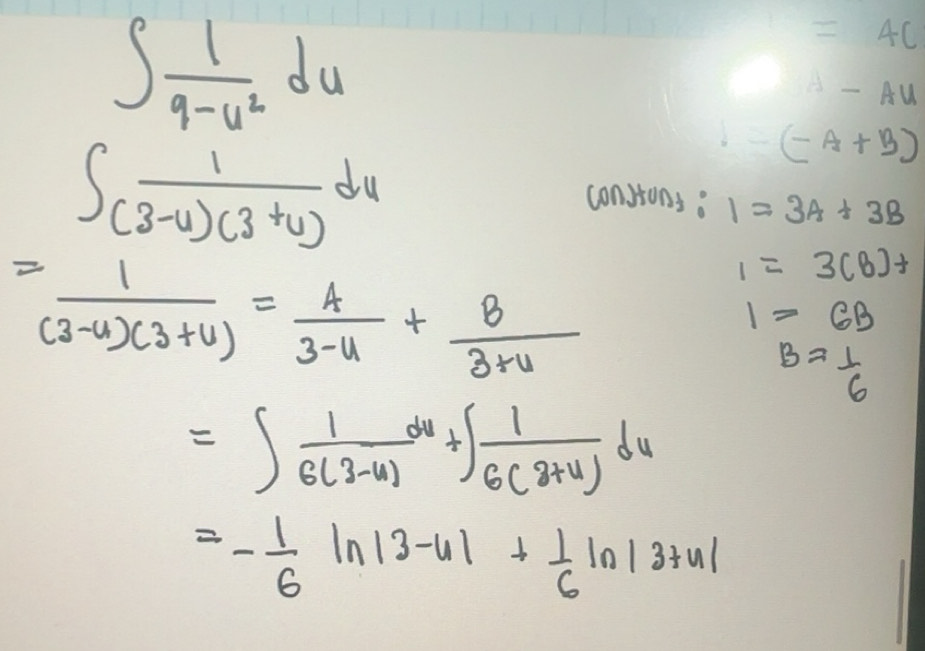 ∫ 1/(9-u²) du
∫ 1/((3-u)(3+u)) du
= 1/((3-u)(3+u)) = A/(3-u) + B/(3+u)
= ∫ 1/(6(3-u)) du + ∫ 1/(6(3+u)) du
= -1/6 ln|3-u| + 1/6 ln|3+u|
= A(
A - Au
1 = (-A + B)
constants: 1 = 3A + 3B
1 = 3(B) +
1 = 6B
B = 1/6